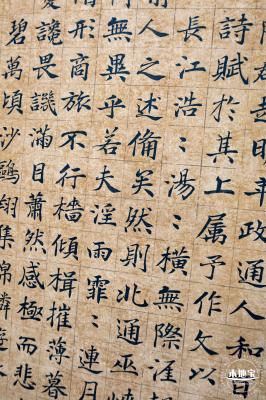 越明年政通人和百
詩賦於其上属予作文以
長江浩〻湯〻橫無際涯
人之述備矣然則北通巫峽
無異乎若夫淫雨霏〻連月
形商旅不行檣傾楫摧薄暮
讒畏譏滿目蕭然感極而悲
碧萬頃沙鷗翔集錦鱗游
本地宝